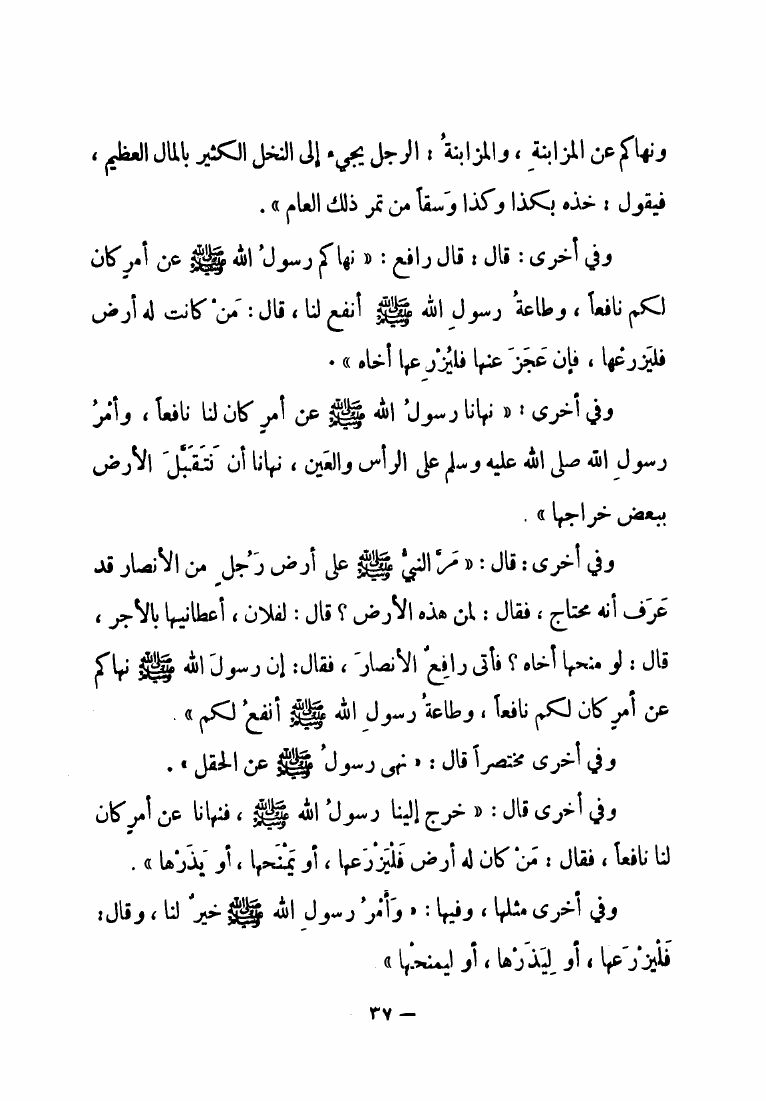 ونهاكم عن المزابنةِ ، والمزابنةُ : الرجل يجيء إلى النخل الكثير بالمال العظيم ،
فيقول : خذه بكذا وكذا وَسقاً من تمر ذلك العام » .
وفي أخرى : قال : قال رافع : « نهاكم رسولُ الله ﷺ عن أمرٍ كان
لكم نافعاً ، وطاعةُ رسولِ الله ﷺ أنفع لنا ، قال : مَنْ كانت له أرض
فليَزرعْها ، فإن عَجَزَ عنها فليُزْرِعها أخاه » .
وفي أخرى : « نهانا رسولُ الله ﷺ عن أمرٍ كان لنا نافعاً ، وأمْرُ
رسولِ الله صلى الله عليه وسلم على الرأس والعَين ، نهانا أن نَتَقَبَّلَ الأرض
ببعض خراجها » .
وفي أخرى : قال : « مَرَّ النبيُّ ﷺ على أرض رَجُلٍ من الأنصار قد
عَرَف أنه محتاج ، فقال : لمن هذه الأرض ؟ قال : لفلان ، أعطانيها بالأجر ،
قال : لو منحها أخاه ؟ فأتى رافِعٌ الأنصارَ ، فقال : إن رسولَ الله ﷺ نهاكم
عن أمرٍ كان لكم نافعاً ، وطاعةُ رسولِ الله ﷺ أنفعُ لكم » .
وفي أخرى مختصراً قال : « نهى رسولُ ﷺ عن الحقل » .
وفي أخرى قال : « خرج إلينا رسولُ الله ﷺ ، فنهانا عن أمرٍ كان
لنا نافعاً ، فقال : مَنْ كان له أرض فَلْيَزْرَعها ، أو يَمْنَحها ، أو يَذَرْها » .
وفي أخرى مثلها ، وفيها : « وَأَمْرُ رسولِ الله ﷺ خيرٌ لنا ، وقال :
فَلْيَزْرَعها ، أو لِيَذَرْها ، أو ليمنحْها »
— ٣٧